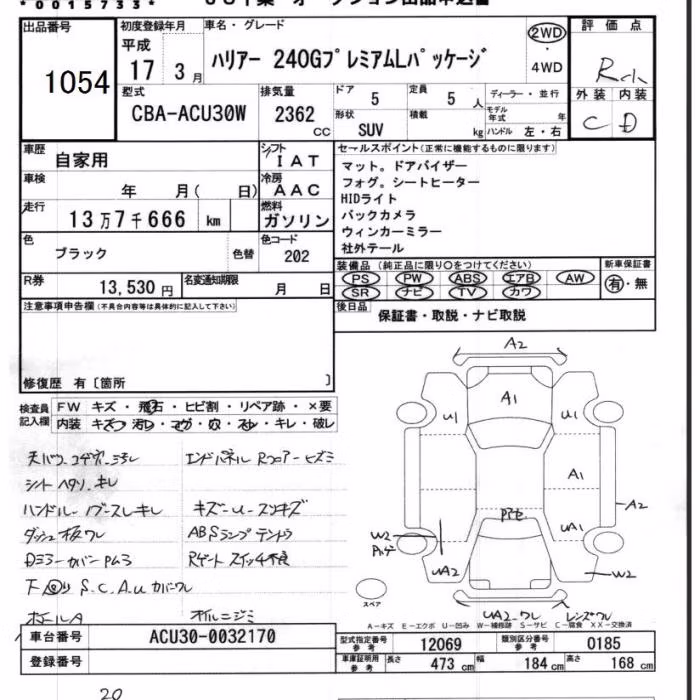 *0015733*
出品番号 1054
初度登録年月 平成 17年 3月
車名・グレード ハリアー 240GプレミアムLパッケージ
2WD ・ 4WD
評価点 R
外装 内装
C D
型式 CBA-ACU30W
排気量 2362 cc
ドア 5 定員 5人
形状 SUV 積載 kg
ディーラー・並行
モデル年式 年
ハンドル 左・右
車歴 自家用
シフト IAT
車検 年 月( 日)
冷房 AAC
走行 13万7千666 km
燃料 ガソリン
色 ブラック 色替
色コード 202
R券 13,530円
名変通知期限 月 日
セールスポイント(正常に機能するものに限ります)
マット。ドアバイザー
フォグ。シートヒーター
HIDライト
バックカメラ
ウィンカーミラー
社外テール
装備品(純正品に限り○をつけてください)
PS PW ABS エアB AW
SR ナビ TV カワ
新車保証書 有・無
後日品 保証書・取説・ナビ取説
注意事項申告欄(不具合内容等は具体的に記入して下さい)
修復歴 有〔箇所 〕
検査員記入欄
FW キズ・飛石・ヒビ割・リペア跡・×要
内装 キズ・汚レ・コゲ・穴・スレ・キレ・破レ
エンドパネル Rフロアーヒズミ
シートヘタリ、キレ
ハンドルー
キズーUースリキズ
ABSランプテントウ
Rゲートスイッチ不良
S.C.Au カバーワレ
A2
A1
U1 U1
A1
A2
UA1
W2
UA2
W2
UA2.ワレ レンズワレ
スペア
A-キズ E-エクボ U-凹み W-補修跡 S-サビ C-腐食 XX-交換済
車台番号 ACU30-0032170
登録番号
型式指定番号 参考 12069
類別区分番号 参考 0185
車庫証明用 参考 長さ 473 cm 幅 184 cm 高さ 168 cm
20